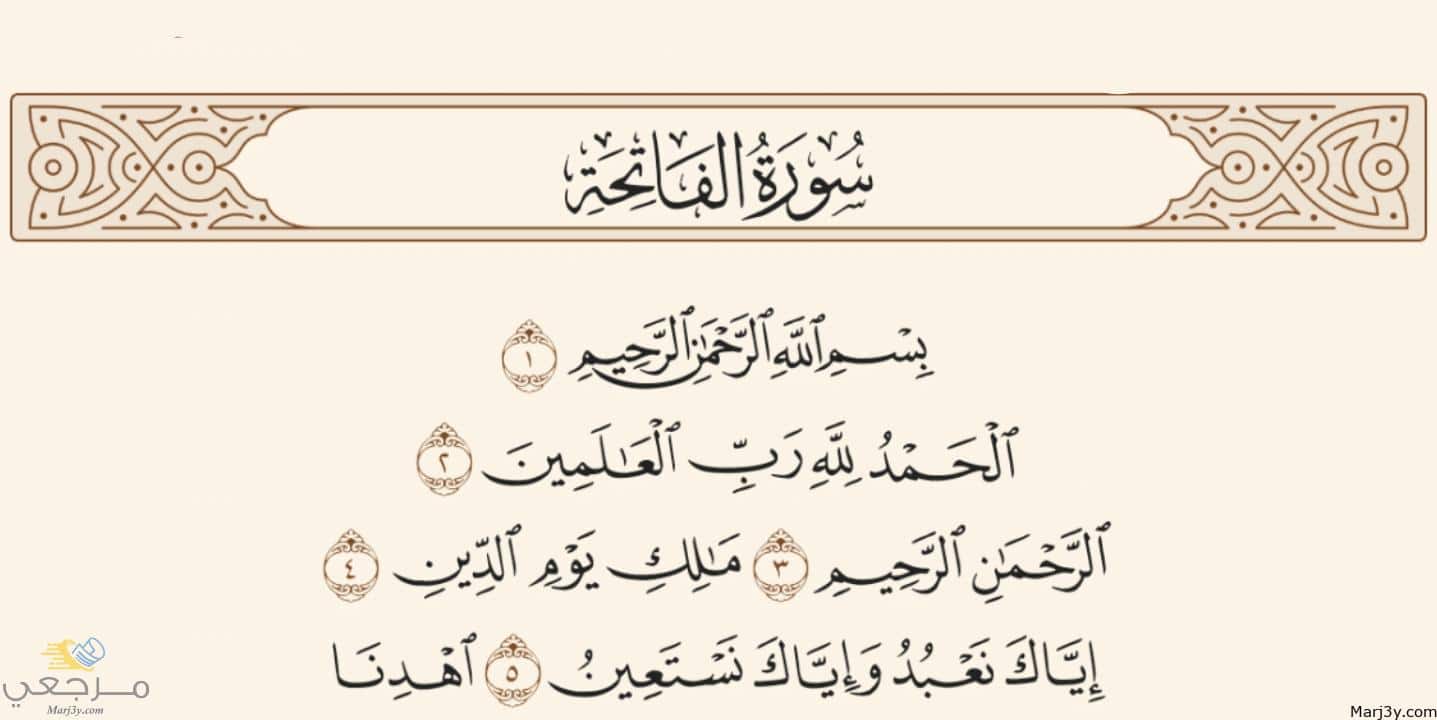 سُورَةُ الفَاتِحَةِ
بِسۡمِ ٱللَّهِ ٱلرَّحۡمَٰنِ ٱلرَّحِيمِ ١
ٱلۡحَمۡدُ لِلَّهِ رَبِّ ٱلۡعَٰلَمِينَ ٢
ٱلرَّحۡمَٰنِ ٱلرَّحِيمِ ٣ مَٰلِكِ يَوۡمِ ٱلدِّينِ ٤
إِيَّاكَ نَعۡبُدُ وَإِيَّاكَ نَسۡتَعِينُ ٥ ٱهۡدِنَا
مرجعي
Marj3y.com
Marj3y.com